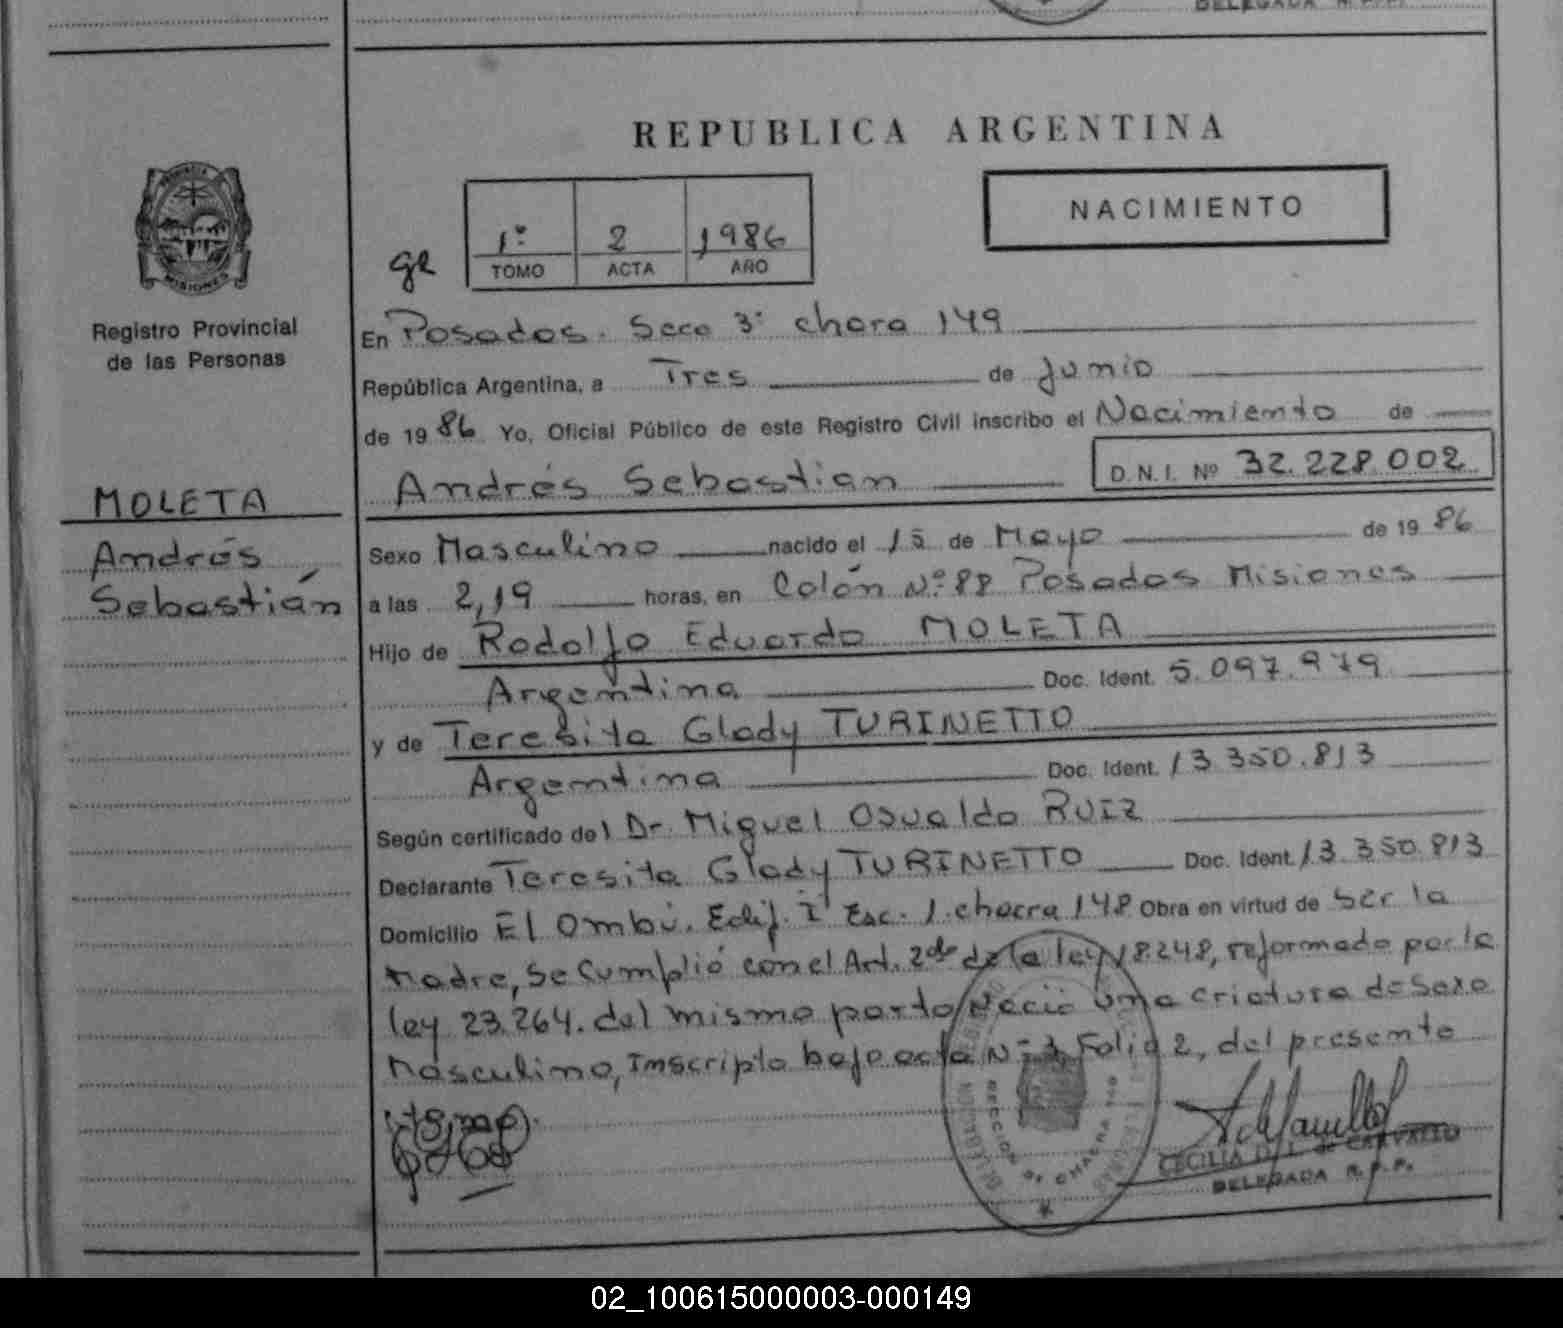 DELEGADA R.P.P.
REPUBLICA ARGENTINA
NACIMIENTO
1º 2 1986
TOMO ACTA AÑO
PROVINCIA
MISIONES
Registro Provincial
de las Personas
MOLETA
Andrés
Sebastián
En Posadas. Secc 3ª chara 149
República Argentina, a Tres de Junio
de 1986 Yo, Oficial Público de este Registro Civil inscribo el Nacimiento de
Andrés Sebastian D.N.I. Nº 32.228.002
Sexo Masculino nacido el 15 de Mayo de 1986
a las 2,19 horas, en Colón Nº 88 Posadas Misiones
Hijo de Rodolfo Eduardo MOLETA
Argentina Doc. Ident. 5.097.979
y de Teresita Glady TURINETTO
Argentina Doc. Ident. 13.350.813
Según certificado del Dr. Miguel Osvaldo RUIZ
Declarante Teresita Glady TURINETTO Doc. Ident. 13.350.813
Domicilio El Ombú. Edif. I Esc. 1. chacra 148 Obra en virtud de Ser la
Madre, Se Cumplió con el Art. 2do de la ley 18.248, reformado por la
ley 23.264. del mismo parto Nació una criatura de Sexo
Masculino, Inscripto bajo acta Nº 3 Folio 2, del presente
tomo.
SECCION 3ª CHACRA 149
CECILIA D. L. de CARVALLO
DELEGADA R.P.P.
02_100615000003-000149